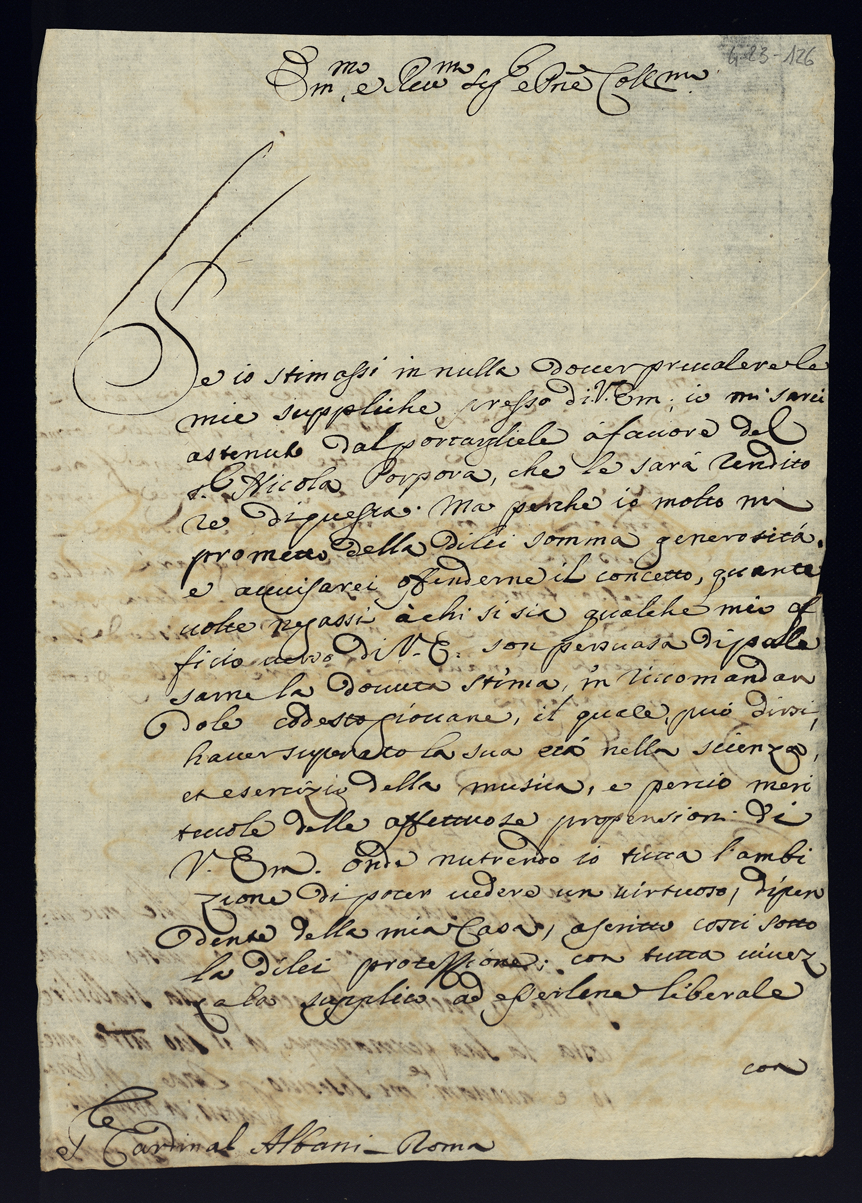 6-23-126
Em.mo e Reu.mo Sig.r e Prñe Coll.mo
Se io stimassi in nulla douer preualere le
mie suppliche presso di V. Em; io mi sarei
astenuta dal portagliele à fauore del
s.r Nicola Porpora, che le sarà rendito
re di questa. Ma perche io molto mi
prometto della di lei somma generosità.
e auuisarei offenderne il concetto, quante
uolte negassi à chi si sia qualche mio of
ficio uerso di V. E. son persuasa di pale
sarne la douuta stima, in riccomandan
dole codesto giouane, il quale, può dirsi,
hauer superato la sua età nella scienza,
et esercizio della musica, e percio meri
teuole delle affettuose propensioni di
V. Em. Onde nutrendo io tutta l'ambi
zione di poter uedere un uirtuoso, dipen
dente della mia Casa, ascritto costi sotto
la di lei protessione; con tutta uiuez
za la supplico ad esserlene liberale
con
Cardinal Albani - Roma